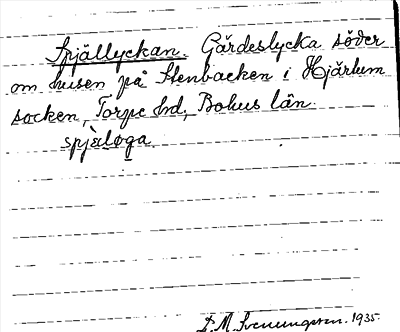 Spjällyckan. Gärdeslycka söder
om husen på Stenbacken i Hjärtum
socken, Torpe hd, Bohus län.
spjæløga
D. M. Svenungsson. 1935.